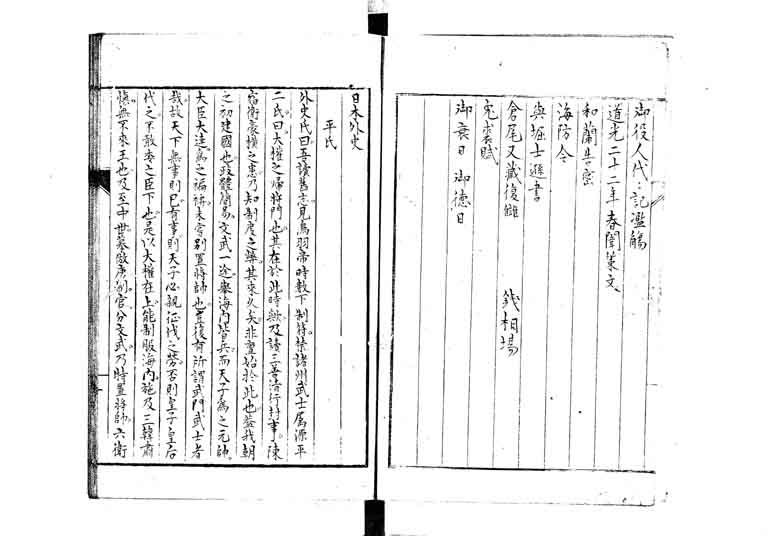 御役人代々記濫觴
道光二十二年春闈策文
和蘭告密
海防令
與堀士遜書
倉尾又蔵復讎　銭相場
兎裘賦
御衰日　御徳日
日本外史
平氏
外史氏曰吾讀舊志見鳥羽帝時数下制符禁諸州武士属源平
二氏曰大權之帰将門也其在於此時歟及讀三善清行封事陳
宿衛豪横之患乃知制度之弊其来久矣非啻始於此也蓋我朝
之初建國也政體簡易文武一途擧海内皆兵而天子為之元帥
大臣大連為之褊裨未嘗別置将帥也豈復有所謂武門武士者
哉故天下無事則已有事則天子必親征伐之勞否則皇子皇后
代之不敢委之臣下也是以大權在上能制服海内施及三韓肅
慎無不来王也及至中世摹倣唐制官分文武乃特置将帥六衛